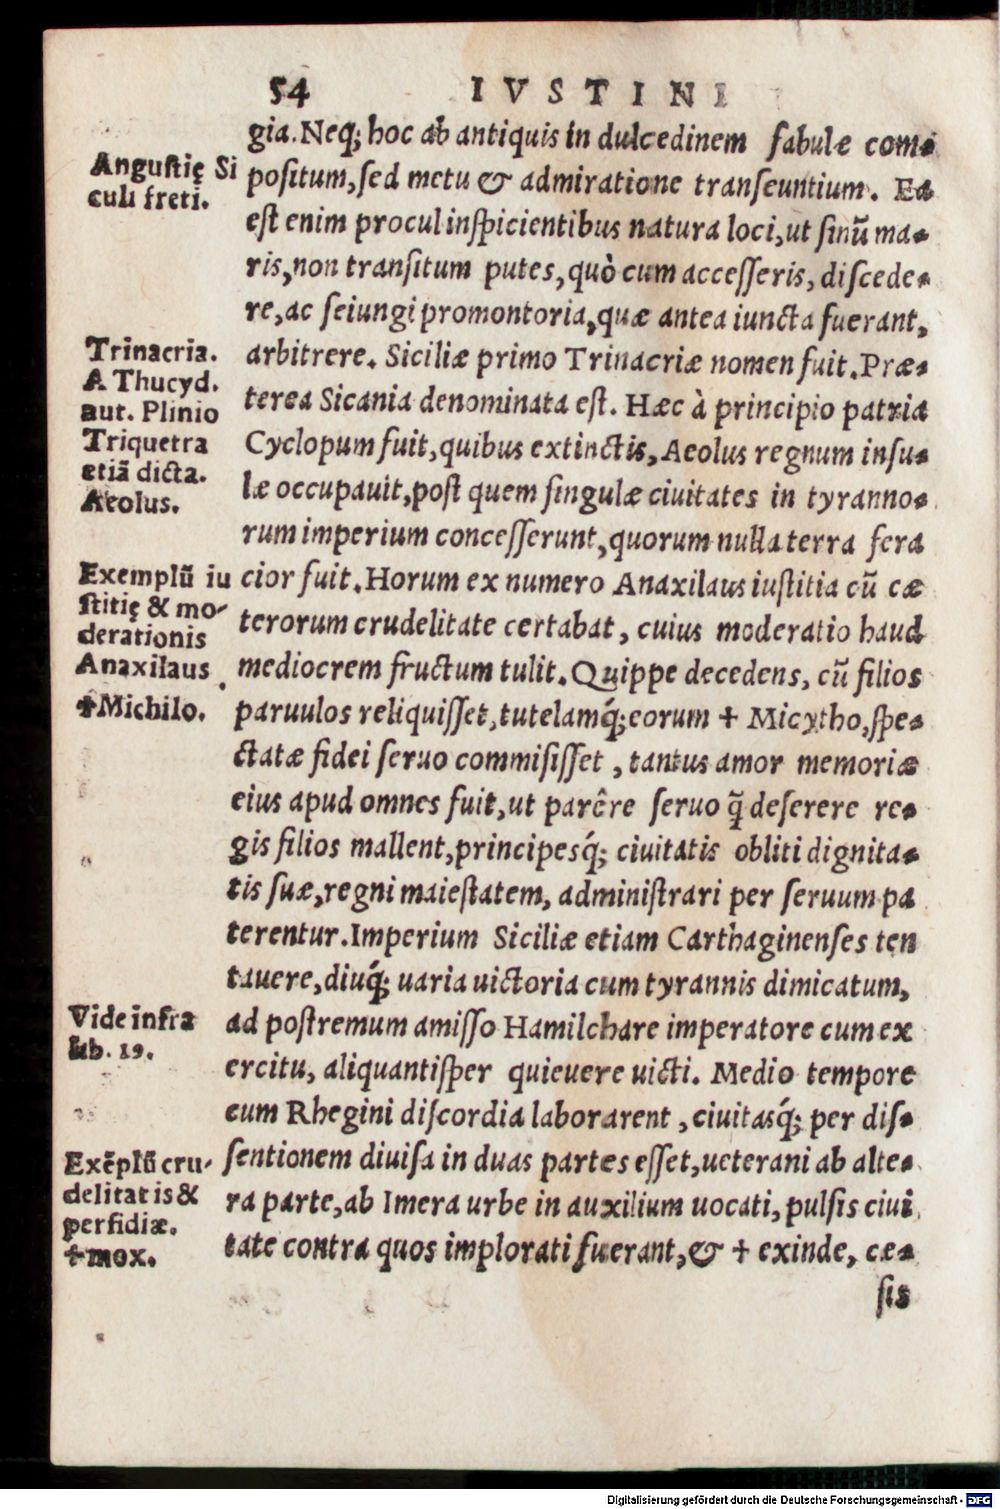 54
IVSTINI
gia. Neq; hoc ab antiquis in dulcedinem fabulæ com-
positum, sed metu & admiratione transeuntium. Ea
est enim procul inspicientibus natura loci, ut sinū ma-
ris, non transitum putes, quò cum accesseris, discede-
re, ac seiungi promontoria, quæ antea iuncta fuerant,
arbitrere. Siciliæ primo Trinacriæ nomen fuit. Præ-
terea Sicania denominata est. Hæc à principio patria
Cyclopum fuit, quibus extinctis, Aeolus regnum insu-
læ occupauit, post quem singulæ ciuitates in tyranno-
rum imperium concesserunt, quorum nulla terra fera
cior fuit. Horum ex numero Anaxilaus iustitia cū cæ
terorum crudelitate certabat, cuius moderatio haud
mediocrem fructum tulit. Quippe decedens, cū filios
paruulos reliquisset, tutelamq́; eorum ✝ Micytho, spe-
ctatæ fidei seruo commisisset, tantus amor memoriæ
eius apud omnes fuit, ut parêre seruo q̃ deserere re-
gis filios mallent, principesq́; ciuitatis obliti dignita-
tis suæ, regni maiestatem, administrari per seruum pa
terentur. Imperium Siciliæ etiam Carthaginenses ten
tauere, diuq́; uaria uictoria cum tyrannis dimicatum,
ad postremum amisso Hamilchare imperatore cum ex
ercitu, aliquantisper quieuere uicti. Medio tempore
cum Rhegini discordia laborarent, ciuitasq́; per dis-
sentionem diuisa in duas partes esset, ueterani ab alte-
ra parte, ab Imera urbe in auxilium uocati, pulsis ciui
tate contra quos implorati fuerant, & ✝ exinde, cæ-
sis
Angustię Si
culi freti.
Trinacria.
A Thucyd.
aut. Plinio
Triquetra
etiā dicta.
Aeolus.
Exemplū iu
stitię & mo-
derationis
Anaxilaus
✝Michilo.
Vide infra
lib. 19.
Exēplū cru-
delitatis &
perfidiæ.
✝mox.
Digitalisierung gefördert durch die Deutsche Forschungsgemeinschaft - DFG